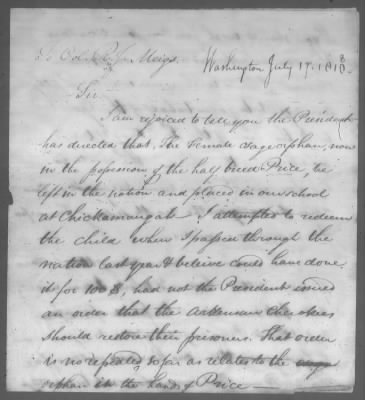 To Col. R. J. Meigs.
Washington July 17. 1818.
Sir
I am rejoiced to tell you the President
has directed that, the Female Osage orphan, now
in the possession of the half breed Price, be
left in the nation and placed in our school
at Chickamaugah. I attempted to redeem
the child when I passed through the
nation last year & beleive could have done
it for 100$, had not the President issued
an order that the arkensaw Cherokees
should restore their prisoners. That order
is no repeated so far as relates to the
orphan in the hands of Price —